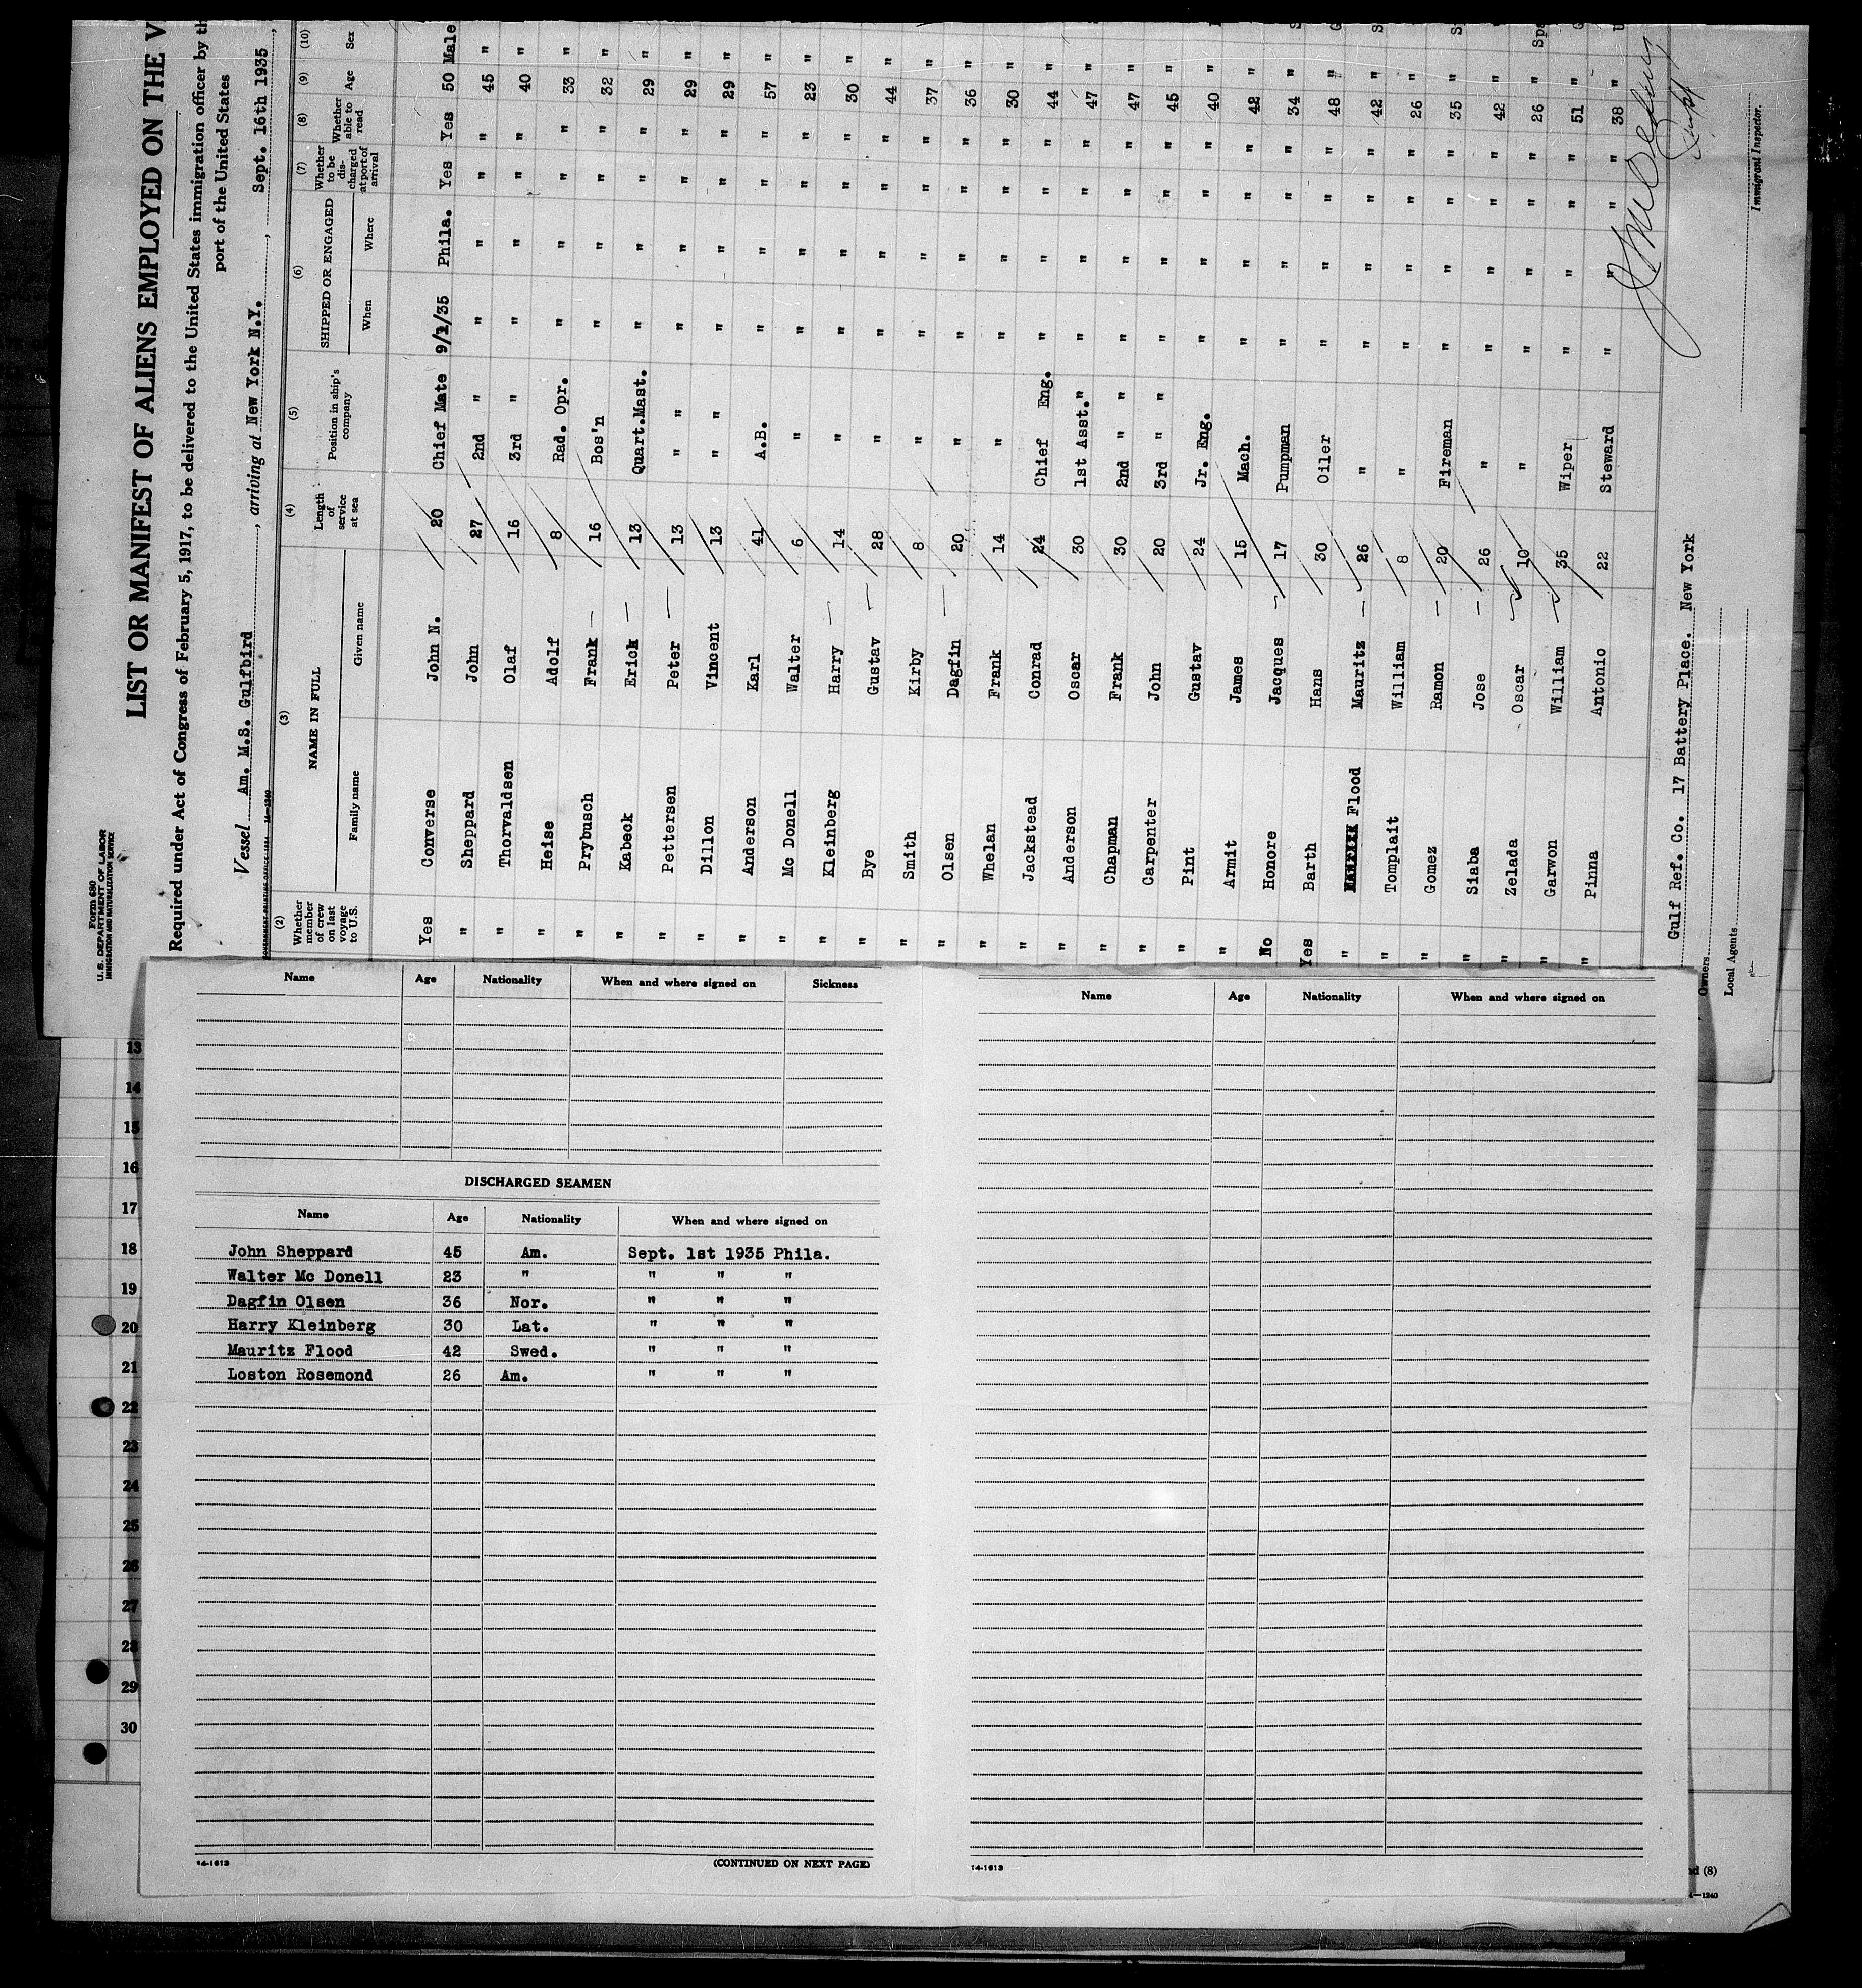 Form 680
U. S. DEPARTMENT OF LABOR
IMMIGRATION AND NATURALIZATION SERVICE
LIST OR MANIFEST OF ALIENS EMPLOYED ON THE V
Required under Act of Congress of February 5, 1917, to be delivered to the United States immigration officer by th
port of the United States
Vessel Am. M.S. Gulfbird, arriving at New York N.Y., Sept. 16th 1935,
(2) (3) (4) (5) (6) (7) (8) (9) (10)
Whether member of crew on last voyage to U.S. NAME IN FULL Length of service at sea Position in ship's company SHIPPED OR ENGAGED Whether to be discharged at port of arrival Whether able to read Age Sex
Family name Given name When Where
Yes Converse John N. 20 Chief Mate 9/1/35 Phila. Yes Yes 50 Male
" Sheppard John 27 2nd " " " " " 45 "
" Thorvaldsen Olaf 16 3rd " " " " " 40 "
" Heise Adolf 8 Rad. Opr. " " " " 33 "
" Prybusch Frank — 16 Bos'n " " " " 32 "
" Kabeck Erick — 13 Quart.Mast. " " " " 29 "
" Pettersen Peter — 13 " " " " " " 29 "
" Dillon Vincent 13 " " " " " " 29 "
" Anderson Karl 41 A.B. " " " " 57 "
" Mc Donell Walter 6 " " " " " 23 "
" Kleinberg Harry — 14 " " " " " 30 "
" Bye Gustav — 28 " " " " " 44 "
" Smith Kirby 8 " " " " " 37 "
" Olsen Dagfin — 20 " " " " " 36 "
" Whelan Frank 14 " " " " " 30 "
" Jackstead Conrad 24 Chief Eng. " " " " 44 "
" Anderson Oscar 30 1st Asst." " " " " 47 "
" Chapman Frank 30 2nd " " " " " " 47 "
" Carpenter John 20 3rd " " " " " " 45 "
" Pint Gustav 24 Jr. Eng. " " " " 40 "
" Armit James 15 Mach. " " " " 42 "
No Honore Jacques — 17 Pumpman " " " " 34 "
Yes Barth Hans 30 Oiler " " " " 48 "
" Flood Mauritz — 26 " " " " " 42 "
" Tomplait William 8 " " " " " 26 "
" Gomez Ramon — 20 Fireman " " " " 35 "
" Siaba Jose — 26 " " " " " 42 "
" Zelada Oscar 10 " " " " " 26 "
" Garwon William 35 Wiper " " " " 51 "
" Pinna Antonio 22 Steward " " " " 38 "
Gulf Ref. Co. 17 Battery Place. New York
Owners
Local Agents
Immigrant Inspector.
Name Age Nationality When and where signed on Sickness
DISCHARGED SEAMEN
Name Age Nationality When and where signed on
John Sheppard 45 Am. Sept. 1st 1935 Phila.
Walter Mc Donell 23 " " " "
Dagfin Olsen 36 Nor. " " "
Harry Kleinberg 30 Lat. " " "
Mauritz Flood 42 Swed. " " "
Loston Rosemond 26 Am. " " "
14-1613 (CONTINUED ON NEXT PAGE)
Name Age Nationality When and where signed on
14-1613
13
14
15
16
17
18
19
20
21
22
23
24
25
26
27
28
29
30
d (8)
—1240